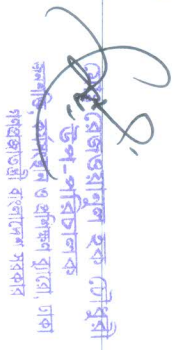 মোঃ রেজওয়ানুল হক চৌধুরী
উপ-পরিচালক
জনশক্তি, কর্মসংস্থান ও প্রশিক্ষণ ব্যুরো, ঢাকা
গণপ্রজাতন্ত্রী বাংলাদেশ সরকার